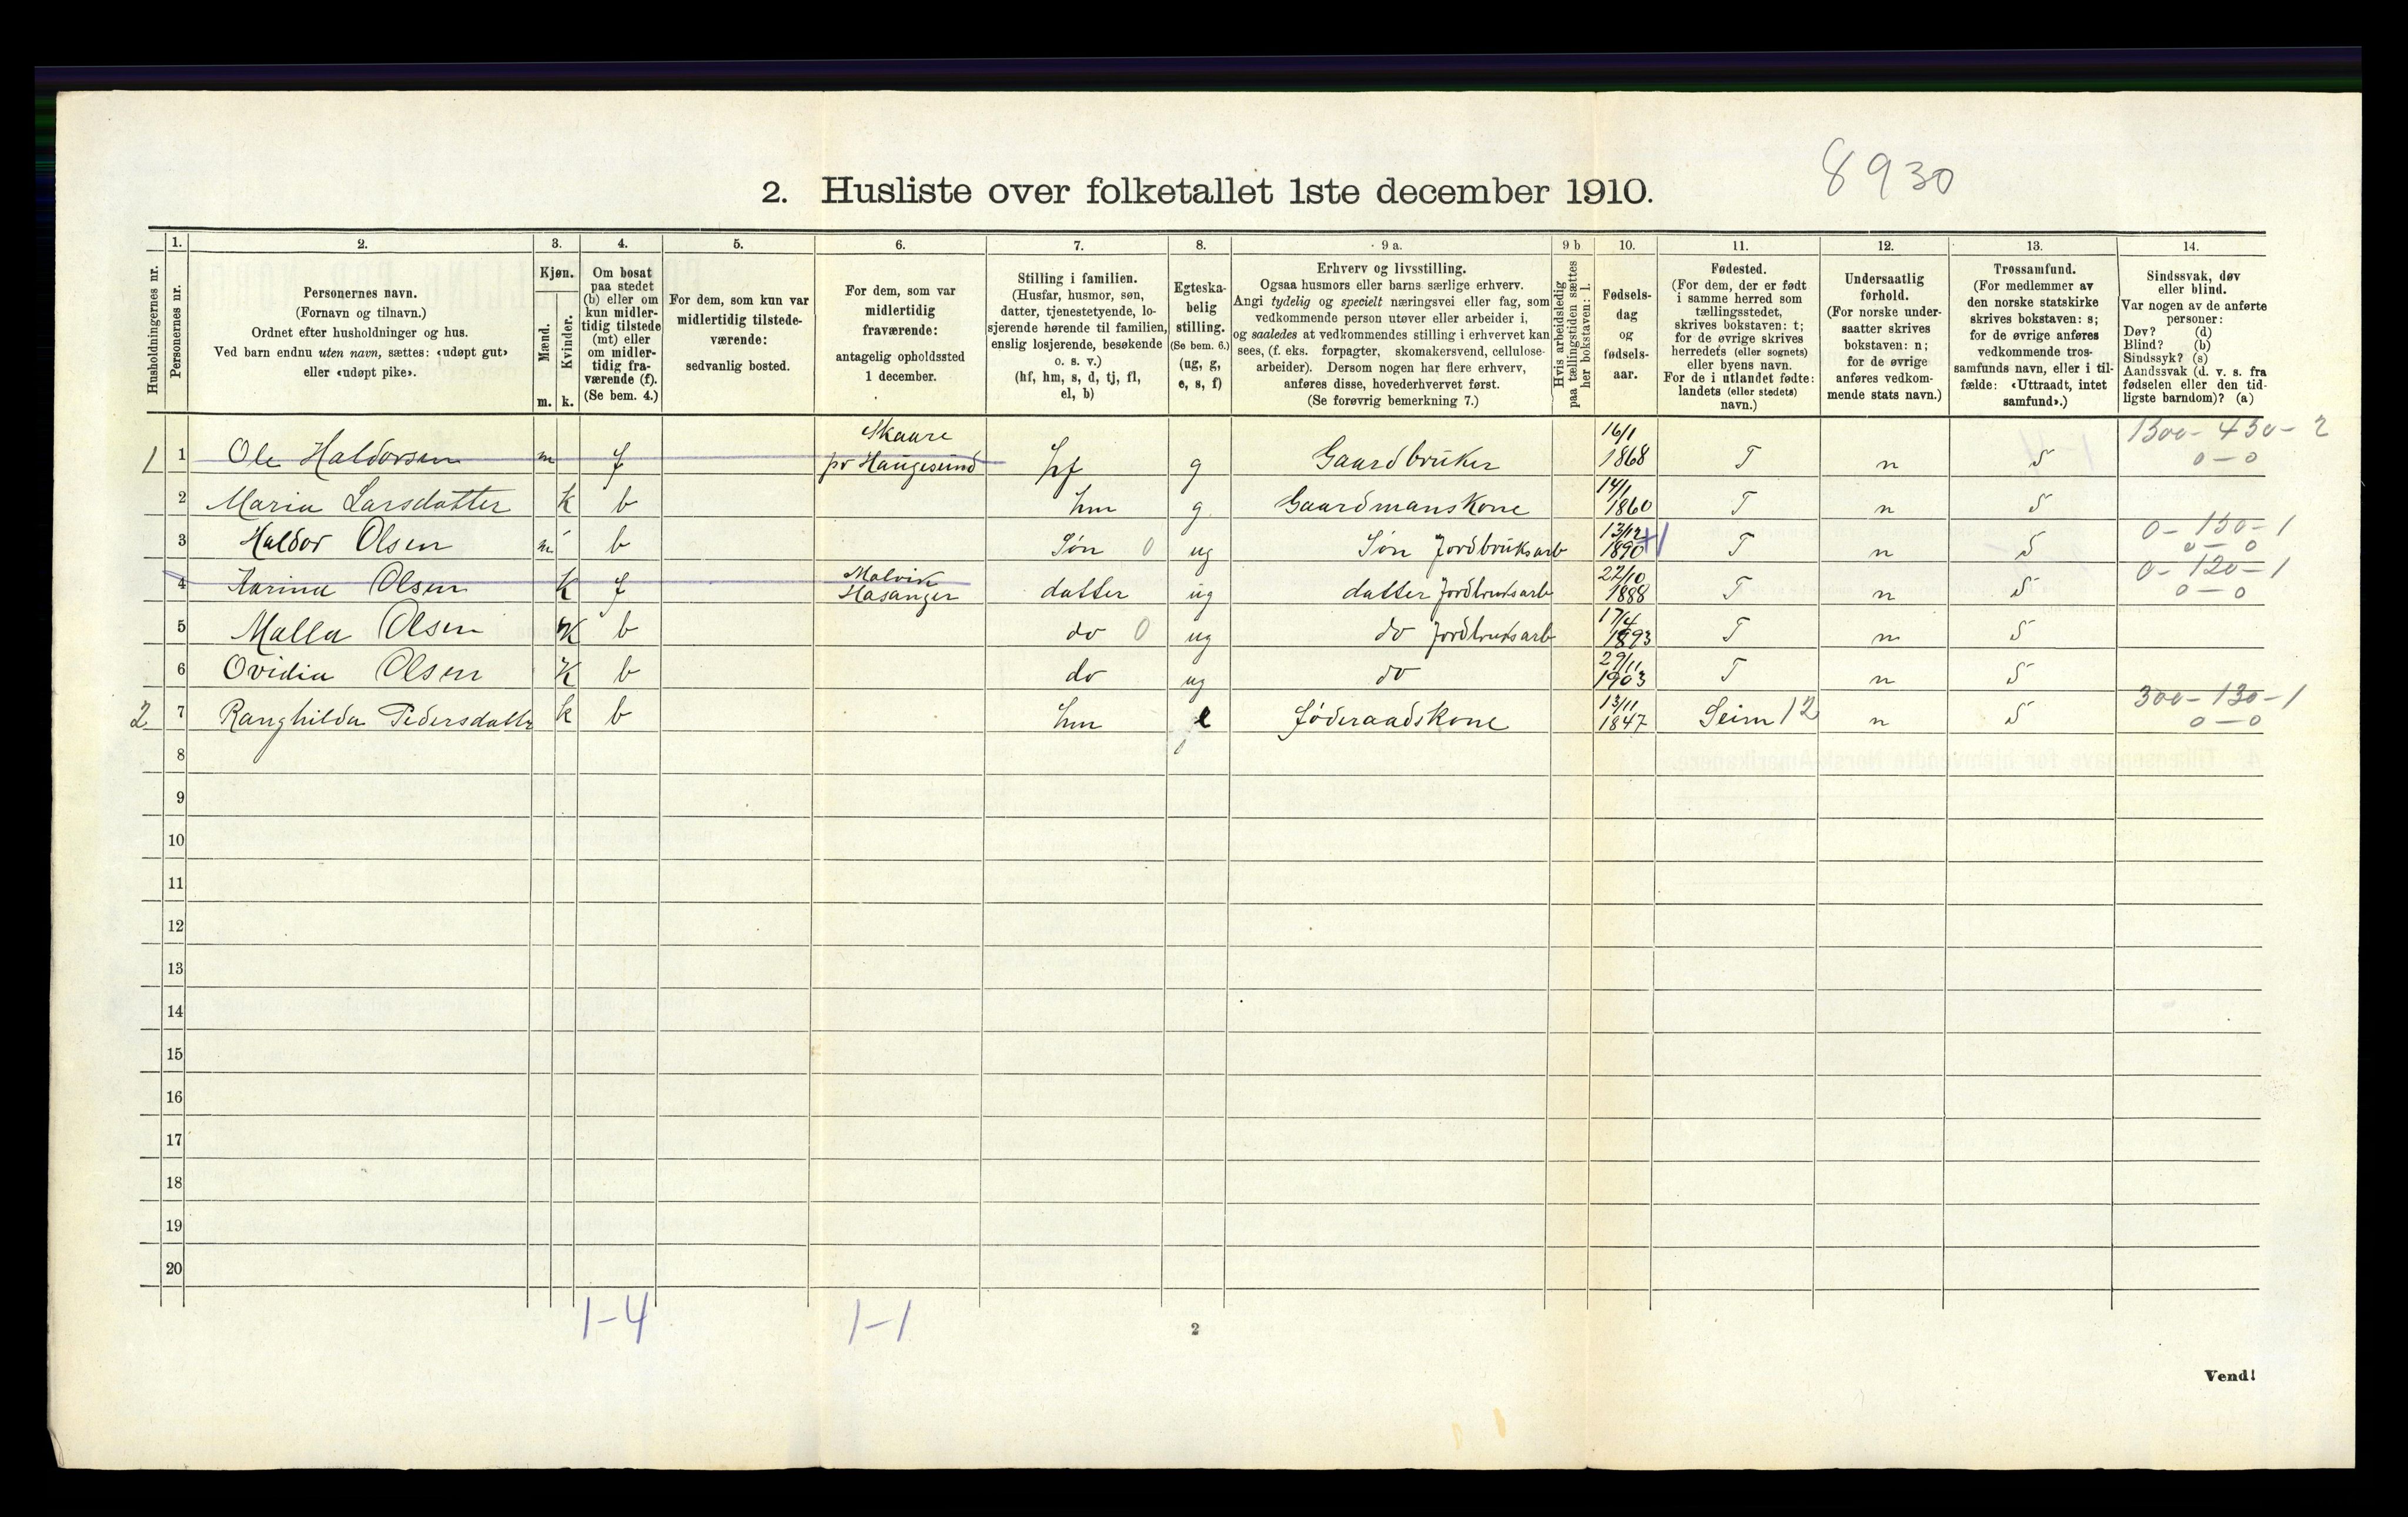 8930
2. Husliste over folketallet 1ste december 1910.
Husholdningernes nr.
1.
Personernes nr.
2.
Personernes navn.
(Fornavn og tilnavn.)
Ordnet efter husholdninger og hus.
Ved barn endnu uten navn, sættes: «udøpt gut»
eller «udøpt pike».
3.
Kjøn.
Mænd.
Kvinder.
m. k.
4.
Om bosat
paa stedet
(b) eller om
kun midler-
tidig tilstede
(mt) eller
om midler-
tidig fra-
værende (f).
(Se bem. 4.)
5.
For dem, som kun var
midlertidig tilstede-
værende:
sedvanlig bosted.
6.
For dem, som var
midlertidig
fraværende:
antagelig opholdssted
1 december.
7.
Stilling i familien.
(Husfar, husmor, søn,
datter, tjenestetyende, lo-
sjerende hørende til familien,
enslig losjerende, besøkende
o. s. v.)
(hf, hm, s, d, tj, fl,
el, b)
8.
Egteska-
belig
stilling.
(Se bem. 6.)
(ug, g,
e, s, f)
9 a.
Erhverv og livsstilling.
Ogsaa husmors eller barns særlige erhverv.
Angi tydelig og specielt næringsvei eller fag, som
vedkommende person utøver eller arbeider i,
og saaledes at vedkommendes stilling i erhvervet kan
sees, (f. eks. forpagter, skomakersvend, cellulose-
arbeider). Dersom nogen har flere erhverv,
anføres disse, hovederhvervet først.
(Se forøvrig bemerkning 7.)
9 b
Hvis arbeidsledig
paa tællingstiden sættes
her bokstaven: l.
10.
Fødsels-
dag
og
fødsels-
aar.
11.
Fødested.
(For dem, der er født
i samme herred som
tællingsstedet,
skrives bokstaven: t;
for de øvrige skrives
herredets (eller sognets)
eller byens navn.
For de i utlandet fødte:
landets (eller stedets)
navn.)
12.
Undersaatlig
forhold.
(For norske under-
saatter skrives
bokstaven: n;
for de øvrige
anføres vedkom-
mende stats navn.)
13.
Trossamfund.
(For medlemmer av
den norske statskirke
skrives bokstaven: s;
for de øvrige anføres
vedkommende tros-
samfunds navn, eller i til-
fælde: «Uttraadt, intet
samfund».)
14.
Sindssvak, døv
eller blind.
Var nogen av de anførte
personer:
Døv? (d)
Blind? (b)
Sindssyk? (s)
Aandssvak (d. v. s. fra
fødselen eller den tid-
ligste barndom)? (a)
1 1 Ole Haldorsen m f Skaare pr Haugesund hf g Gaardbruker 16/1 1868 T n S 1300-430-2 0-0
2 Maria Larsdatter K b hm g Gaardmanskone 14/1 1860 T n S
3 Haldor Olsen m b Søn 0 ug Søn Jordbruksarb 13/12 1890 +1 T n S 0-150-1 0-0
4 Karina Olsen K f Malvik Hasanger datter ug datter Jordbruksarb 22/10 1888 T n S 0-120-1 0-0
5 Malla Olsen K b do 0 ug do Jordbruksarb 17/4 1893 T n S
6 Ovidia Olsen K b do ug do 29/11 1903 T n S
2 7 Ranghilda Pedersdatter k b hm e Føderaadskone 13/11 1847 Seim 12 n S 300-130-1 0-0
8
9
10
11
12
13
14
15
16
17
18
19
20
1-4 1-1
2
Vend!